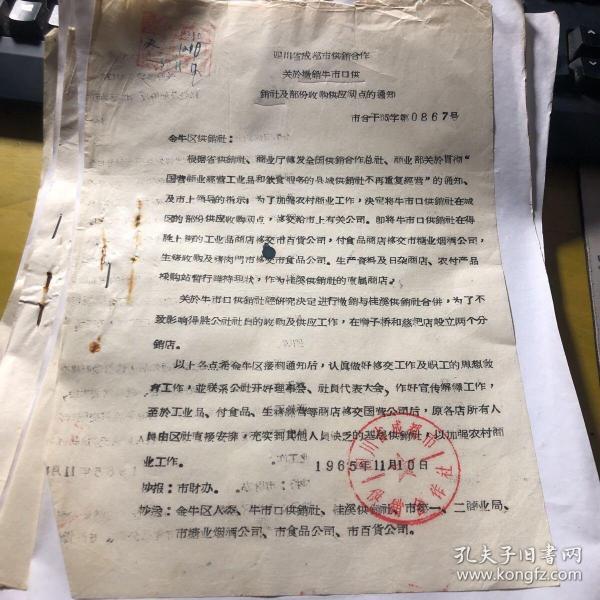 四川省成都市供銷合作
关於撤銷牛市口供
銷社及部份收购供应网点的通知
市合干55字第0867号
金牛区供銷社：
根据省供銷社、商业厅轉发全国供銷合作总社、商业部关於貫彻“
国营商业經营工业品和飲食服务的县城供銷社不再重复經营”的通知、
及市上領导的指示：为了加強农村商业工作，决定将牛市口供銷社在城
区的部份供应收购网点，移交給市上有关公司。即将牛市口供銷社在得
胜上街的工业品商店移交市百貨公司，付食品商店移交市糖业烟酒公司，
生猪收购及猪肉門市移交市食品公司。生产資料及日杂商店、农付产品
採购站暂行維持现状，作为桂溪供銷社的直属商店。
关於牛市口供銷社經研究决定进行撤銷与桂溪供銷社合併，为了不
致影响得胜公社社員的收购及供应工作，在獅子桥和慈肥店設立两个分
銷店。
以上各点希金牛区接到通知后，认眞做好移交工作及职工的思想教
育工作，並联系公社开好理事会、社員代表大会，作好宣传解释工作，
至於工业品、付食品、生猪經营等商店移交国营公司后，原各店所有人
員由区社直接安排，充实到其他人員缺乏的基层供銷社，以加強农村商
业工作。
1965年11月10日
抄报：市财办。
抄送：金牛区人委、牛市口供銷社、桂溪供銷社、市第一、二商业局、
市糖业烟酒公司、市食品公司、市百貨公司。
四川省成都市
供銷合作社
孔夫子旧书网
www.kongfz.com